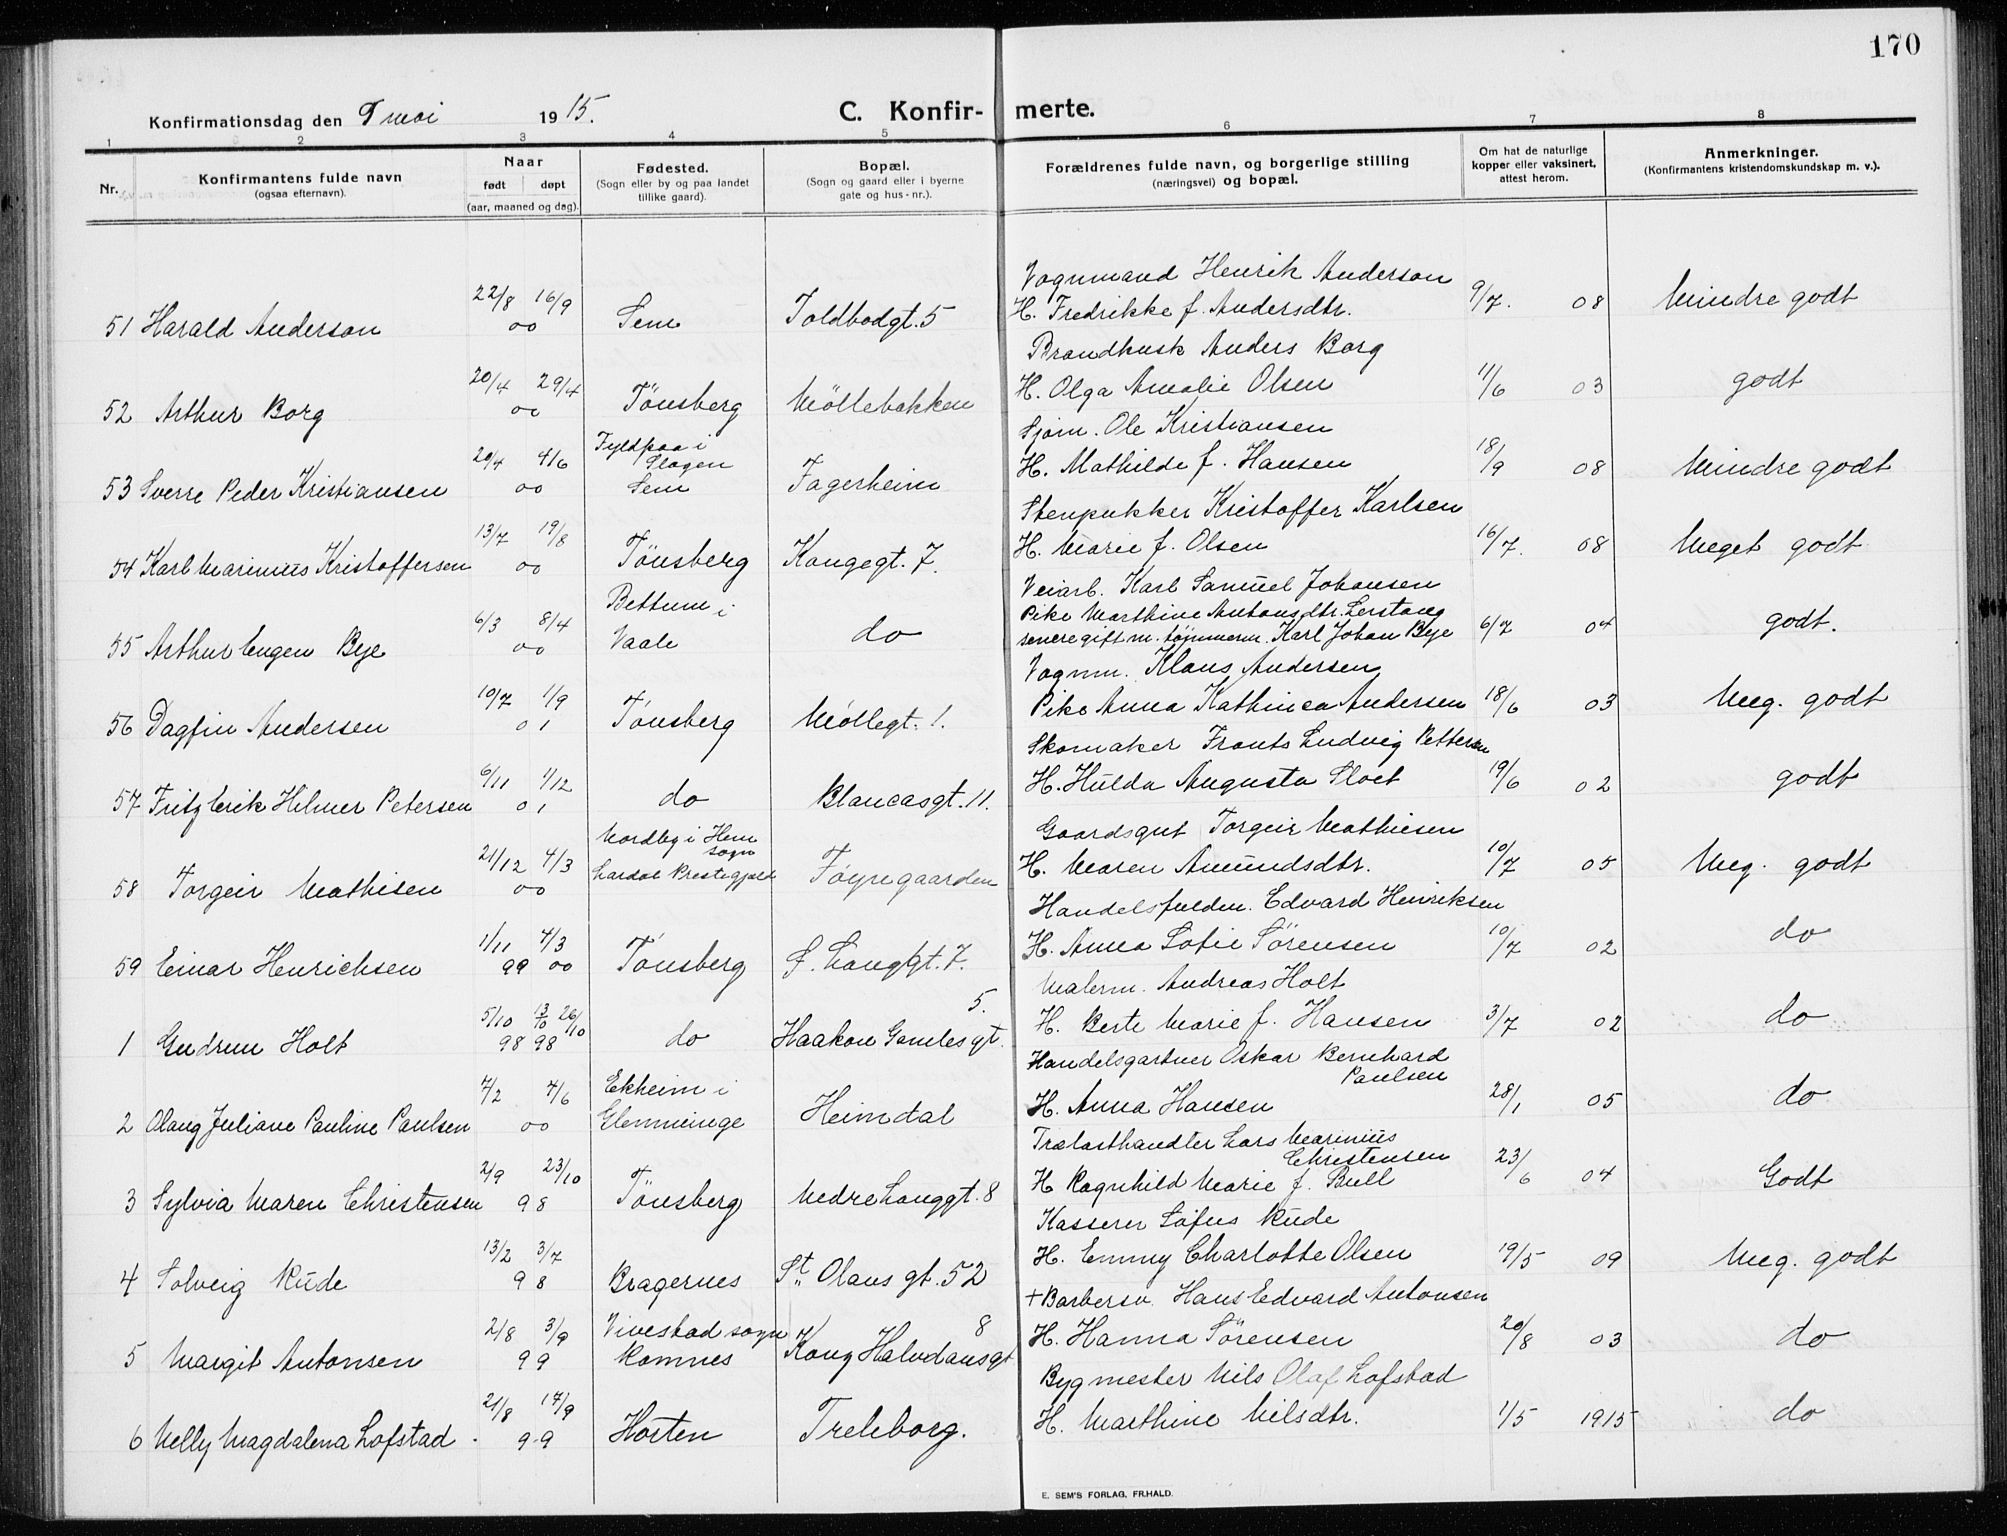 170
Konfirmationsdag den 9 mai 1915.
C. Konfirmerte.
1 2 3 4 5 6 7 8
Nr.
Konfirmantens fulde navn
(ogsaa efternavn).
Naar
født døpt
(aar, maaned og dag).
Fødested.
(Sogn eller by og paa landet
tillike gaard).
Bopæl.
(Sogn og gaard eller i byerne
gate og hus-nr.).
Forældrenes fulde navn, og borgerlige stilling
(næringsvei) og bopæl.
Om hat de naturlige
kopper eller vaksinert,
attest herom.
Anmerkninger.
(Konfirmantens kristendomskundskap m. v.).
Vognmand Henrik Anderson
51 Harald Anderson 22/8 16/9 00 Sem Toldbodgt. 5 H. Fredrikke f. Andersdtr. 9/7. 08 Mindre godt
Brandkusk Anders Borg
52 Arthur Borg 20/4 29/4 00 Tönsberg Möllebakken H. Olga Amalie Olsen 11/6 03 godt
Sjöm. Ole Kristiansen
53 Sverre Peder Kristiansen 20/4 4/6 00 Fyldpaa i Slagen Sem Fagerheim H. Mathilde f. Hansen 18/9 08 Mindre godt
Stenpukker Kristoffer Karlsen
54 Karl Marinius Kristoffersen 13/7 19/8 00 Tönsberg Kongegt. 7. H. Marie f. Olsen 16/7. 08 Meget godt
Veiarb. Karl Samuel Johansen
Pike Marthine Antonsdtr. Lerstang
55 Arthur Eugen Bye 6/3 8/4 00 Bettum i Vaale do senere gift m. tömmerm. Karl Johan Bye 6/7 04 godt.
Vognm. Klaus Andersen
56 Dagfin Andersen 10/7 1/9 01 Tönsberg Möllegt. 1. Pike Anna Kathinca Andersen 18/6 03 Meg. godt
Skomaker Frants Ludvig Pettersen
57 Fritz Erik Hilmer Petersen 6/11 1/12 01 do Blancasgt. 11. H. Hulda Augusta Sloet 19/6 02 godt
Gaardsgut Torgeir Mathiesen
58 Torgeir Mathisen 21/12 4/3 00 Nordby i Hem sogn Lardal Prestegjeld Föyregaarden H. Maren Amundsdtr. 10/7 05 Meg. godt
Handelsfuldm. Edvard Henriksen
59 Einar Henrichsen 1/11 99 4/3 00 Tönsberg S. Langgt. 7. H. Anna Sofie Sörensen 10/7 02 do
Malerm. Andreas Holt
1 Gudrun Holt 5/10 98 13/10 98 26/10 do Haakon Gamlesgt. 5. H. Berte Marie f. Hansen 3/7 02 do
Handelsgartner Oskar Bernhard Paulsen
2 Olaug Juliane Pauline Paulsen 7/2 4/6 00 Ekheim i Glemminge Heimdal H. Anna Hansen 28/1 05 do
Trælasthandler Lars Marinius Christensen
3 Sylvia Maren Christensen 2/9 23/10 98 Tönsberg Nedre Langgt. 8 H Ragnhild Marie f. Bull 23/6 04 Godt
Kasserer Sofus Rude
4 Solveig Rude 13/2 3/7 98 Bragernes St. Olavs gt. 52 H. Emmy Charlotte Olsen 19/5 09 Meg. godt
+ Barbersv. Hans Edvard Antonsen
5 Margit Antonsen 2/8 3/9 99 Vivestad sogn Ramnes Kong Halvdansgt 8 H. Hanna Sörensen 20/8 03 do
Bygmester Nils Olaf Lofstad
6 Nelly Magdalena Lofstad 21/8 17/9 99 Horten Treleborg. H. Marthine Nilsdtr. 1/5 1915 do
E. SEM'S FORLAG, FR.HALD.